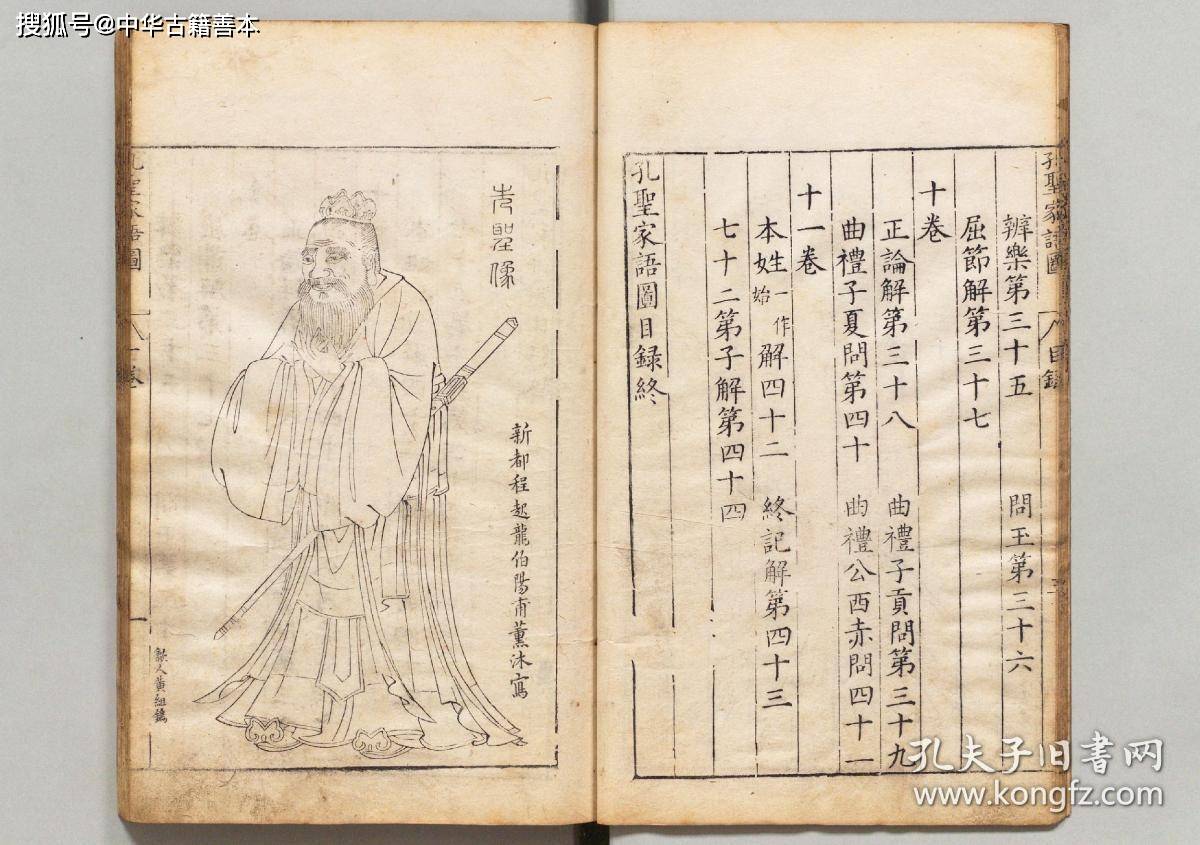 搜狐号@中华古籍善本
孔聖家語圖
目錄
辨樂第三十五 問玉第三十六
屈節解第三十七
十卷
正論解第三十八 曲禮子貢問第三十九
曲禮子夏問第四十 曲禮公西赤問四十一
十一卷
本姓一作始解四十二 終記解第四十三
七十二第子解第四十四
孔聖家語圖目錄終
先聖像
新都程起龍伯陽甫薰沐寫
歙人黃組鐫
孔聖家語圖
一卷
一
孔夫子旧书网
www.kongfz.com